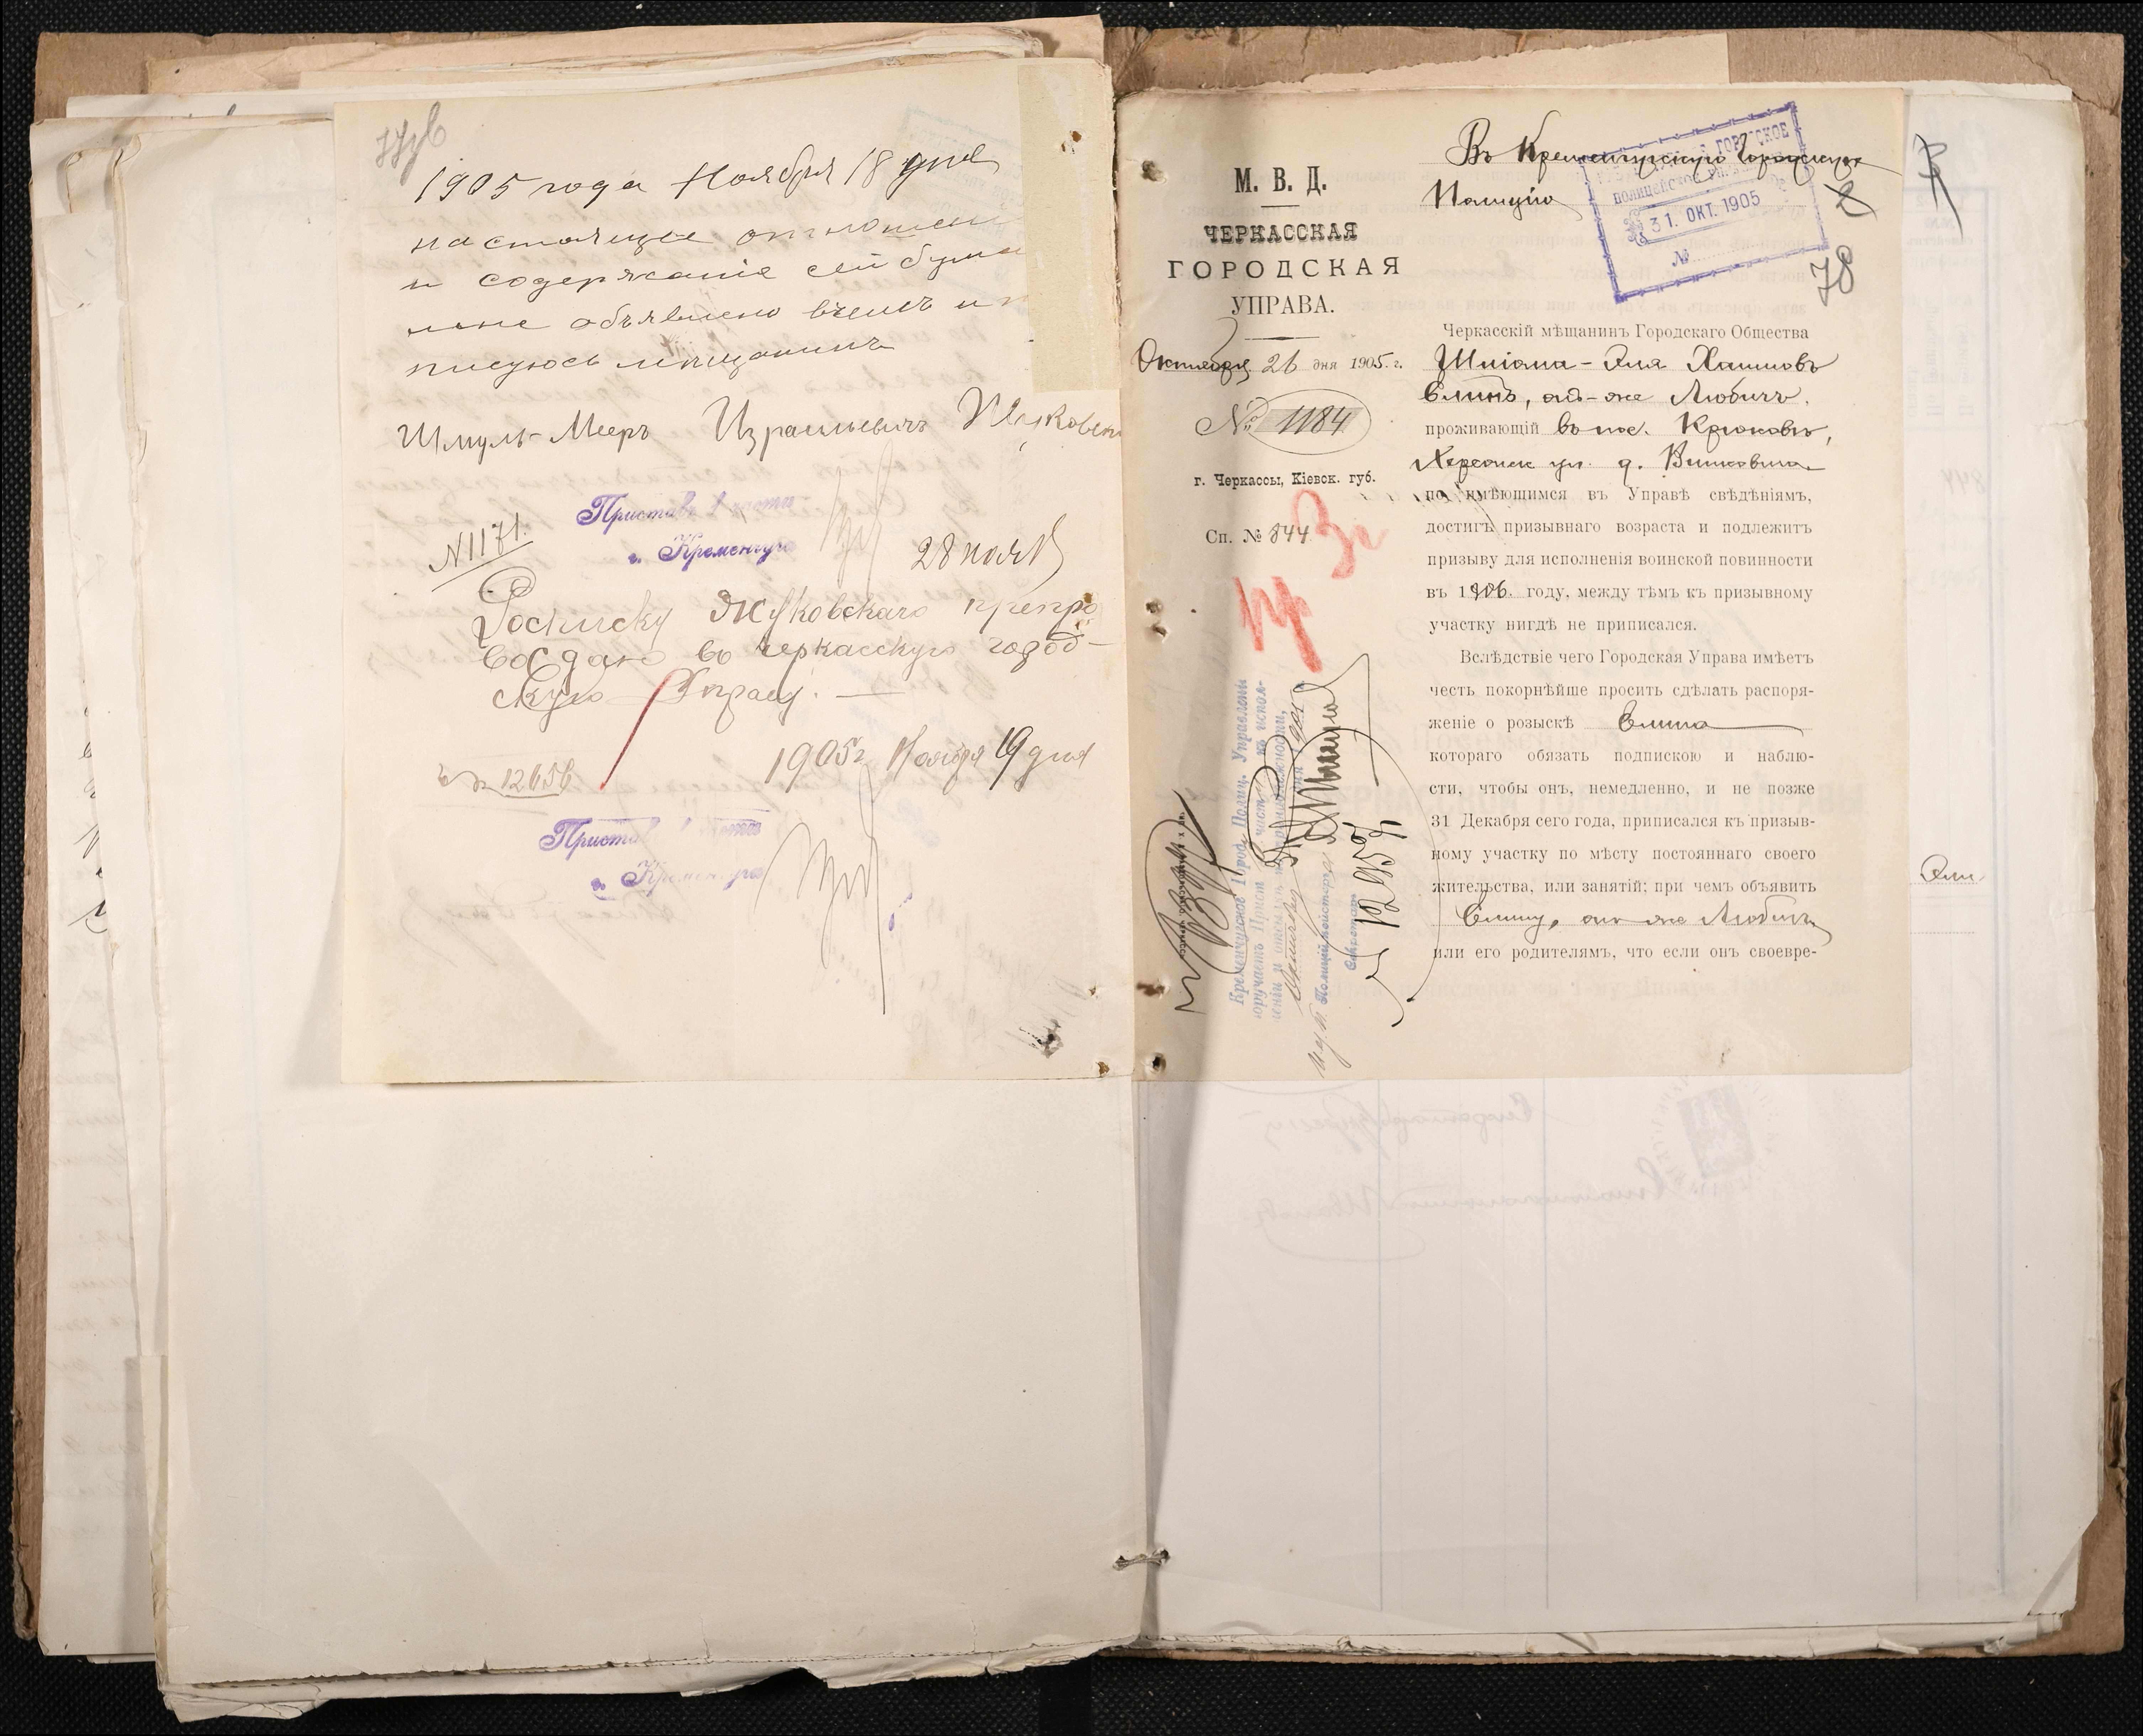 77об
1905 года Ноября 18 дня
настоящее отношен
и содержаніе сей бума
мне объявлено вчемъ и
писуюсь мещанинъ
Шмуль-Мееръ Израилевичъ Жуковск
Приставъ 1 части
г. Кременчуга
N 1171.
28 нояб
Росписку Жуковскаго препро
вождаю въ черкасскую город-
скую Управу.
1905 г. Ноября 19 дня
№ 12656
Приставъ 1 части
г. Кременчуга
М. В. Д.
ЧЕРКАССКАЯ
ГОРОДСКАЯ
УПРАВА.
Октября 26 дня 1905 г.
№ 1184
г. Черкассы, Кіевск. губ.
Сп. № 844
Въ Кременчугскую Городскую
Полицію
ПОЛИЦЕЙСКОЕ
31. ОКТ. 1905
№
78
Черкасскій мѣщанинъ Городскаго Общества
Шліома-Эля Хаимовъ
Елинъ, онъ-же Любичъ,
проживающій въ пос. Крюковъ,
Херсонск ул. д.
по имѣющимся въ Управѣ свѣдѣніямъ,
достигъ призывнаго возраста и подлежитъ
призыву для исполненія воинской повинности
въ 1906 году, между тѣмъ къ призывному
участку нигдѣ не приписался.
Вслѣдствіе чего Городская Управа имѣетъ
честь покорнѣйше просить сдѣлать распоря-
женіе о розыскѣ Елина
котораго обязать подпискою и наблю-
сти, чтобы онъ, немедленно, и не позже
31 Декабря сего года, приписался къ призыв-
ному участку по мѣсту постояннаго своего
жительства, или занятій; при чемъ объявить
Елину, онъ же Любичъ
или его родителямъ, что если онъ своевре-
Кременчугское Город. Полиц. Управленіе
поручаетъ Прист. части къ испол-
Полиціймейстеръ
Секретарь
12959